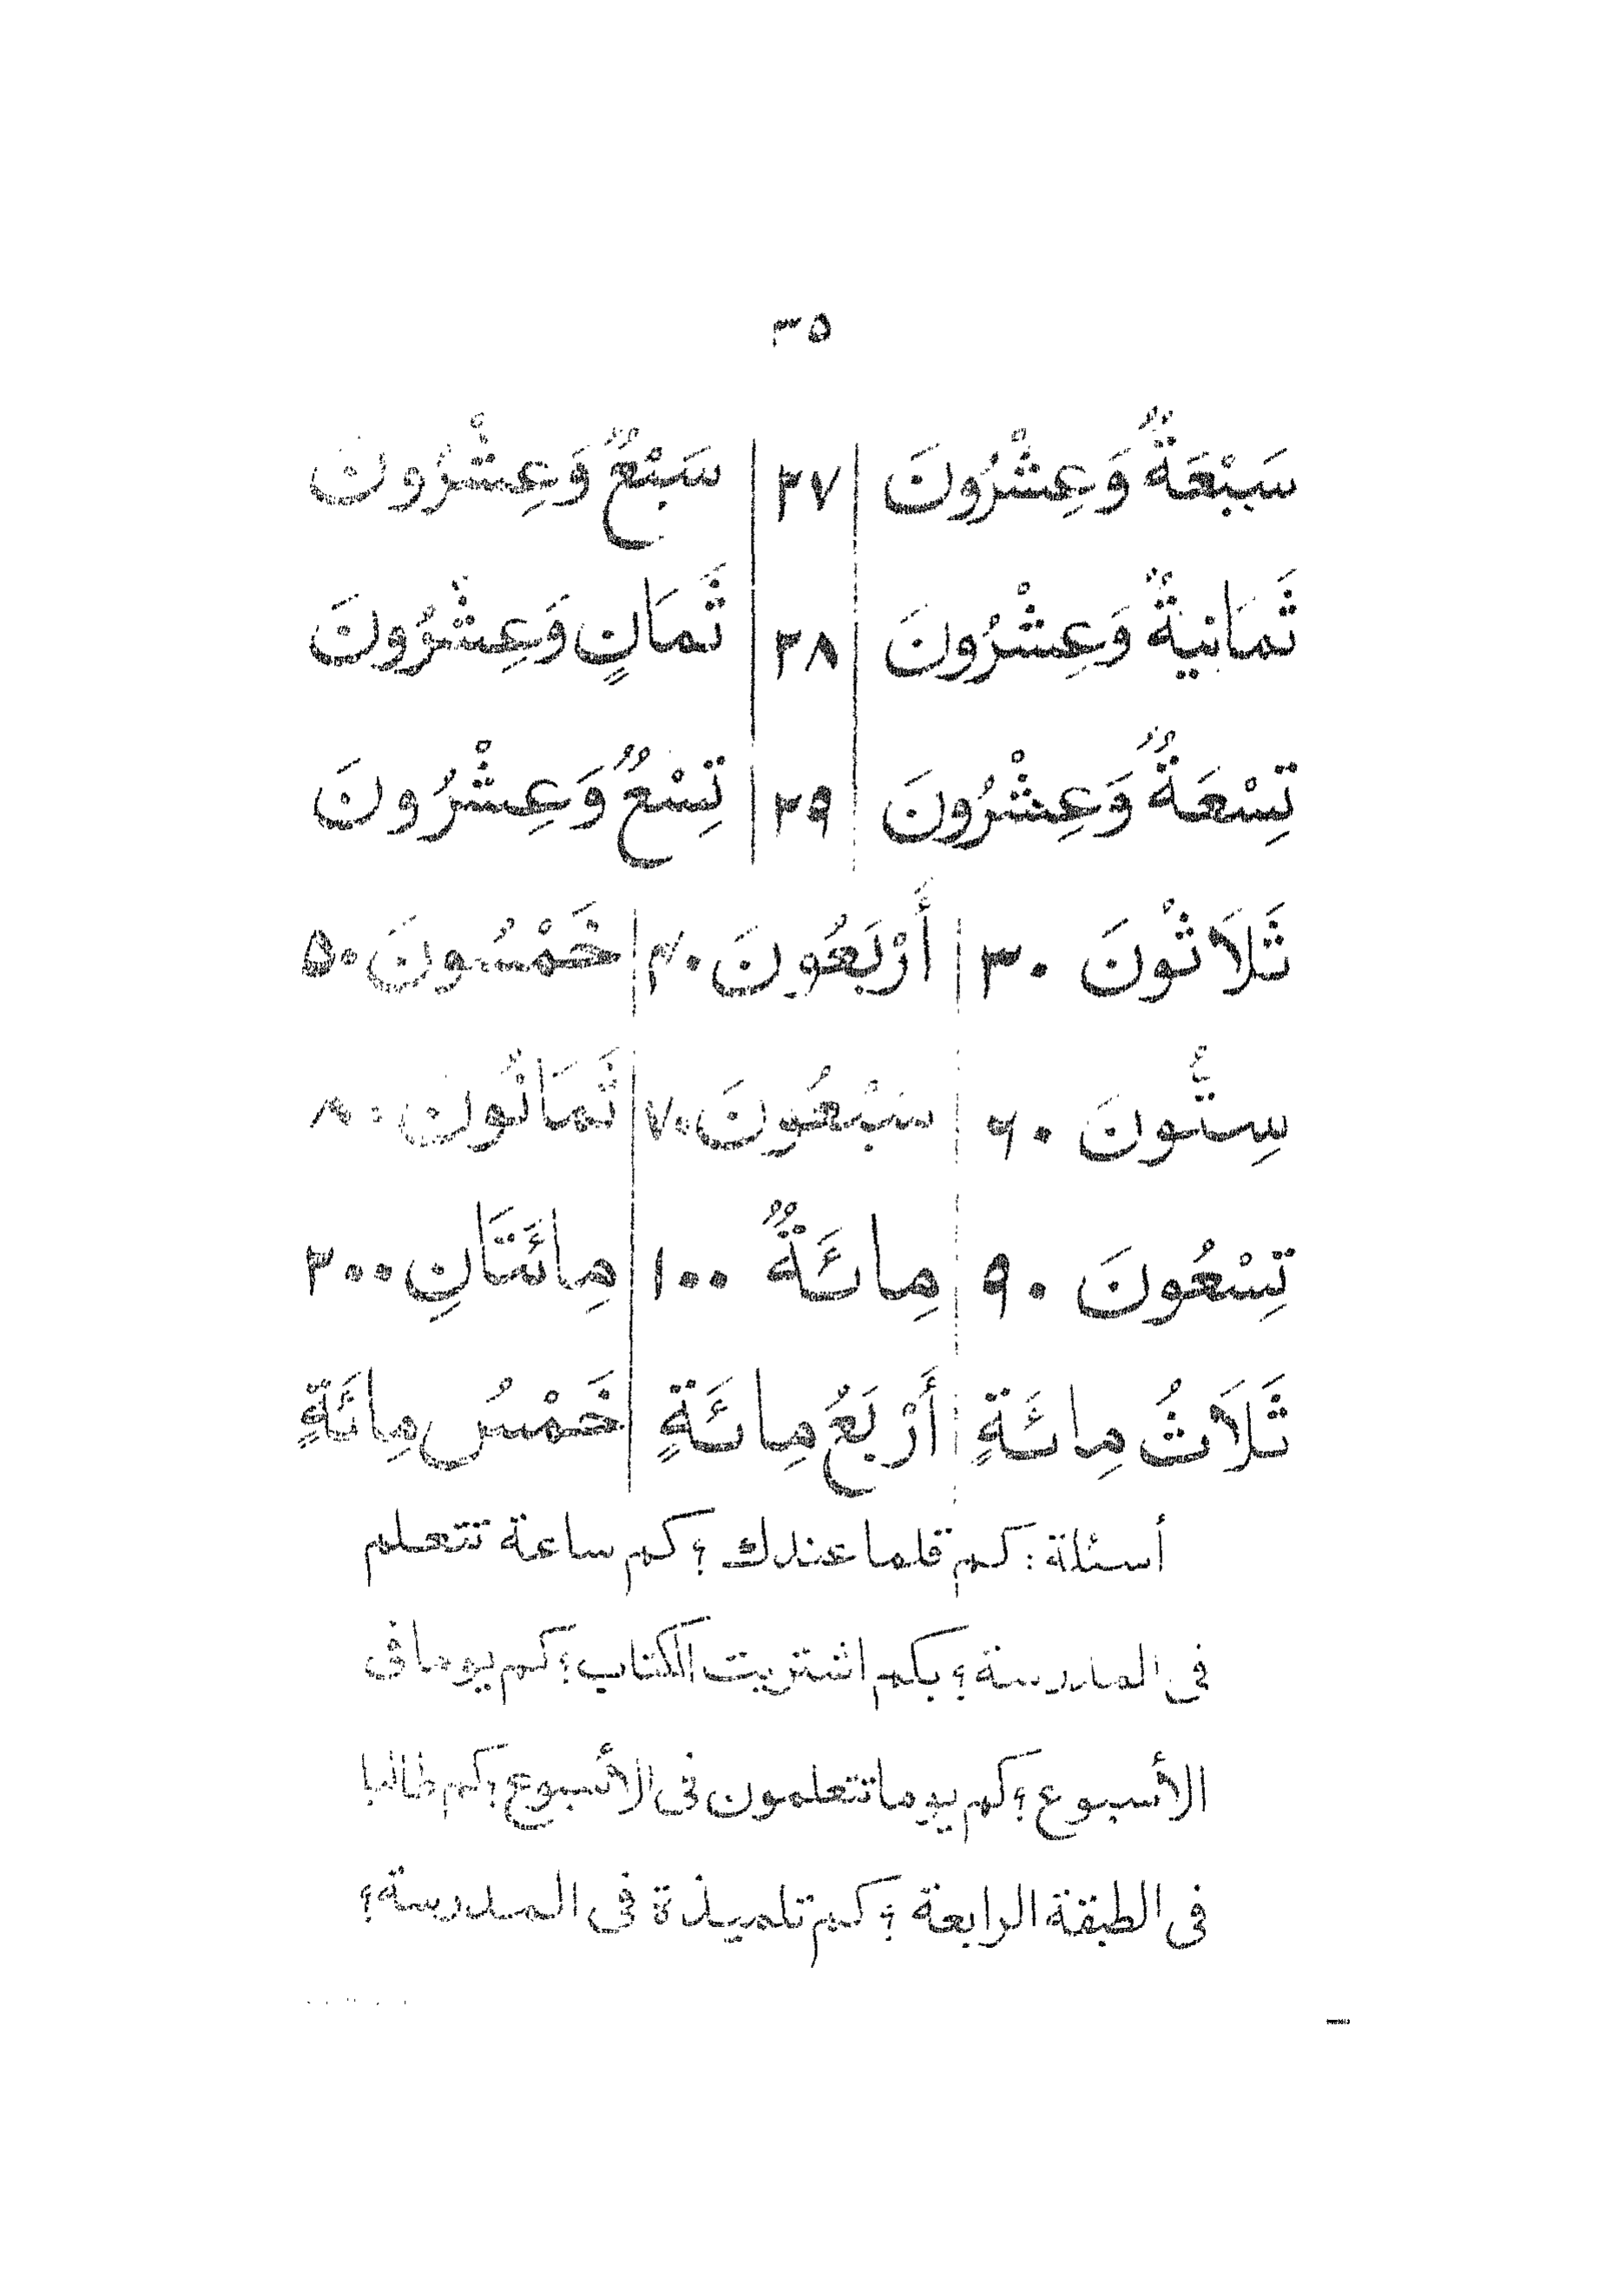 ٣٥
سَبْعَةٌ وَعِشْرُونَ | ٢٧ | سَبْعٌ وَعِشْرُونَ
ثَمَانِيةٌ وَعِشْرُونَ | ٢٨ | ثَمَانٍ وَعِشْرُونَ
تِسْعَةٌ وَعِشْرُونَ | ٢٩ | تِسْعٌ وَعِشْرُونَ
ثَلَاثُونَ ٣٠ | أَرْبَعُونَ ٤٠ | خَمْسُونَ ٥٠
سِتُّونَ ٦٠ | سَبْعُونَ ٧٠ | ثَمَانُونَ ٨٠
تِسْعُونَ ٩٠ | مِائَةٌ ١٠٠ | مِائَتَانِ ٢٠٠
ثَلَاثُ مِائَةٍ | أَرْبَعُ مِائَةٍ | خَمْسُ مِائَةٍ
أسئلة : كم قلما عندك ؟ كم ساعة تتعلم
فى المدرسة ؟ بكم اشتريت الكتاب ؟ كم يوما فى
الأسبوع ؟ كم يوما تتعلمون فى الأسبوع ؟ كم طالبا
فى الطبقة الرابعة ؟ كم تلميذة فى المدرسة ؟